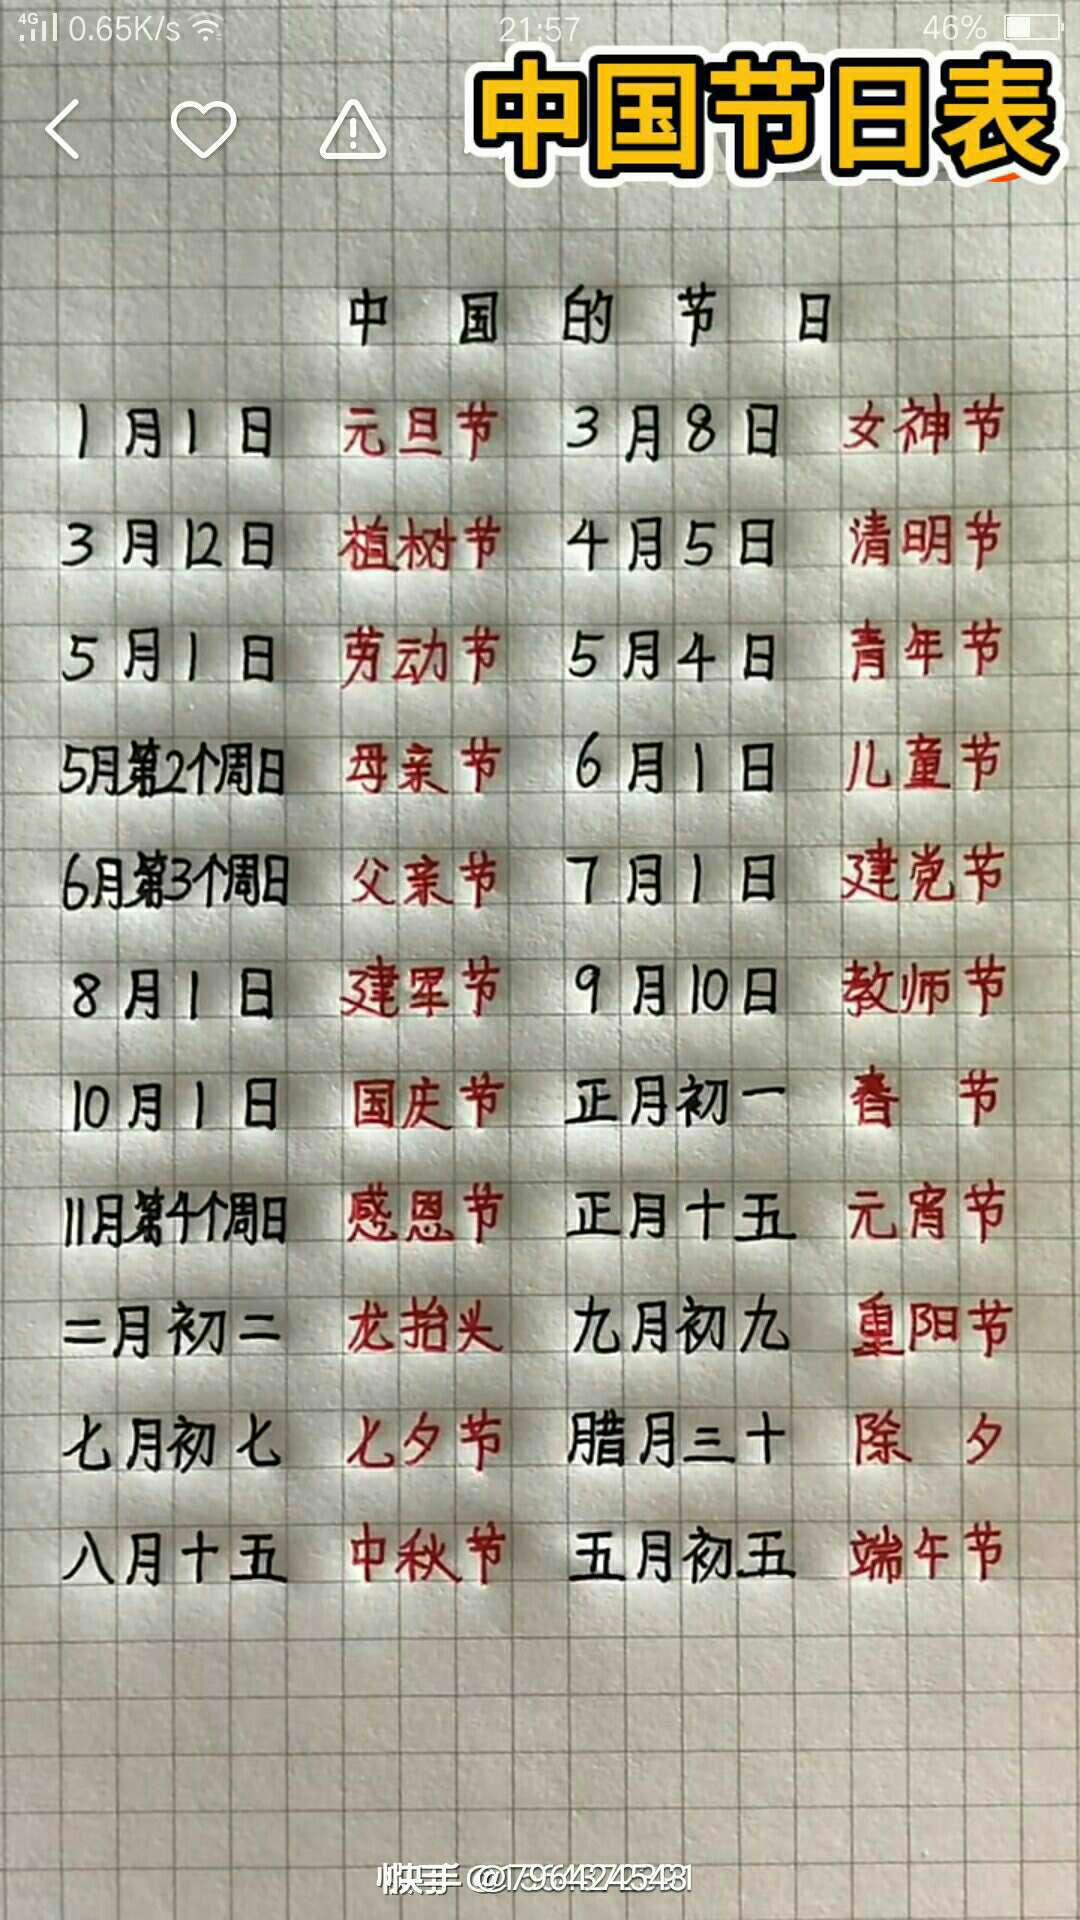 4G 0.65K/s 21:57 46%
中国节日表
中国的节日
1月1日 元旦节 3月8日 女神节
3月12日 植树节 4月5日 清明节
5月1日 劳动节 5月4日 青年节
5月第2个周日 母亲节 6月1日 儿童节
6月第3个周日 父亲节 7月1日 建党节
8月1日 建军节 9月10日 教师节
10月1日 国庆节 正月初一 春节
11月第4个周日 感恩节 正月十五 元宵节
二月初二 龙抬头 九月初九 重阳节
七月初七 七夕节 腊月三十 除夕
八月十五 中秋节 五月初五 端午节
快手